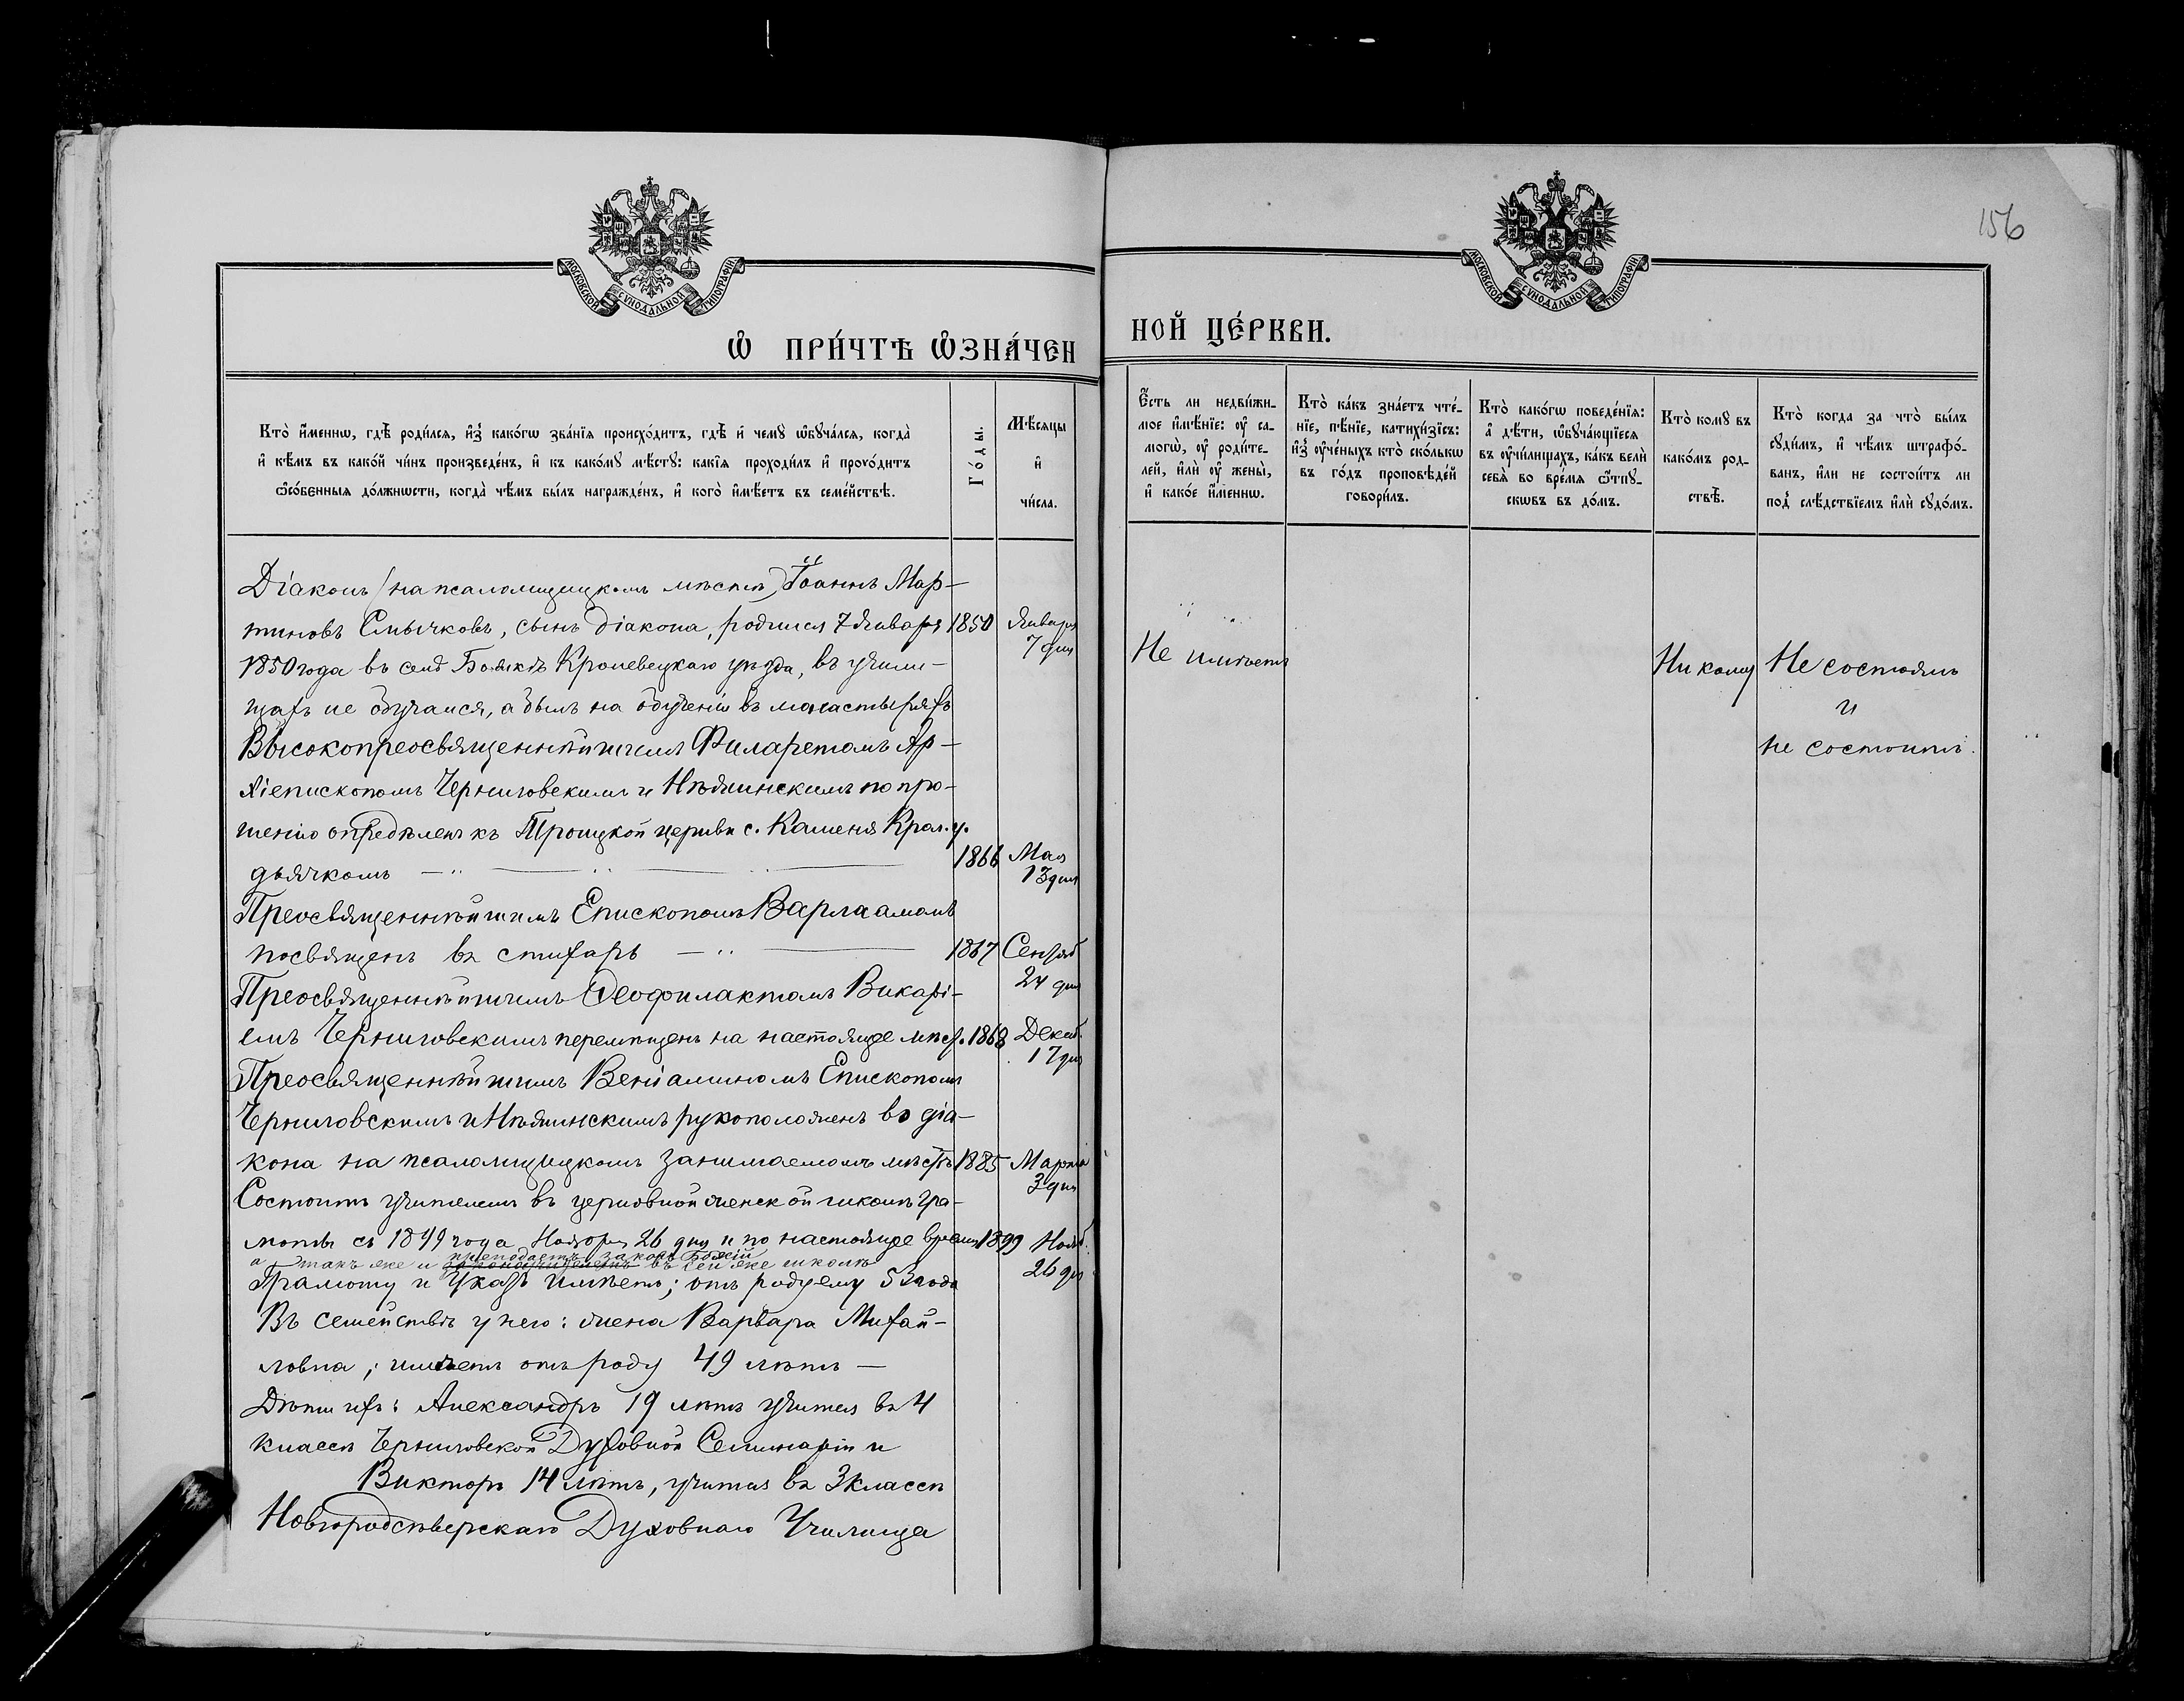 156
МОСКОВСКОЙ СУНОДАЛЬНОЙ ТИПОГРАФІИ
МОСКОВСКОЙ СУНОДАЛЬНОЙ ТИПОГРАФІИ
Ѡ҆ ПРИ́ЧТѢ Ѡ҆ЗНА́ЧЕН
НОЙ ЦЕ́РКВИ.
Кто̀ и҆́меннѡ, гдѣ̀ роди́лсѧ, и҆з̾ како́гѡ зва́нїѧ происхо́дитъ, гдѣ̀ и҆ чемꙋ̀ ѡ҆бꙋча́лсѧ, когда̀
и҆ кѣ́мъ въ како́й чи́нъ произведе́нъ, и҆ къ како́мꙋ мѣ́стꙋ: какі̑ѧ проходи́лъ и҆ прохо́дитъ
ѻ҆со́бєнныѧ до́лжнѡсти, когда̀ чѣ́мъ бы́лъ награжде́нъ, и҆ кого̀ и҆мѣ́етъ въ семе́йствѣ.
Го́ды.
Мѣ́сѧцы
и҆
чи́сла.
Є҆́сть ли недви́жи-
мое и҆мѣ́нїе: оу҆ са-
могѡ̀, оу҆ роди́те-
лей, и҆лѝ оу҆ жены̀,
и҆ како́е и҆́меннѡ.
Кто̀ ка́къ зна́етъ чте́-
нїе, пѣ́нїе, катихи́зїсъ:
и҆з̾ оу҆че́ныхъ кто̀ ско́лькѡ
въ го́дъ проповѣ́дей
говори́лъ.
Кто̀ како́гѡ поведе́нїѧ:
а҆ дѣ́ти, ѡ҆бꙋча́ющїесѧ
въ оу҆чи́лищахъ, ка́къ велѝ
себѧ̀ во вре́мѧ ѿпꙋ-
скѡвъ въ до́мъ.
Кто̀ комꙋ̀ въ
како́мъ род-
ствѣ̀.
Кто̀ когда̀ за что̀ бы́лъ
сꙋди́мъ, и҆ чѣ́мъ штрафо́-
ванъ, и҆лѝ не состои́тъ ли
под̾ слѣ́дствїемъ и҆лѝ сꙋдо́мъ.
Діаконъ (на псаломщицкомъ мѣстѣ) Іоаннъ Мар-
тиновъ Смычковъ, сынъ діакона, родился 7 Января 1850 Января
7 дня
1850 года въ селѣ Кролевецкаго уѣзда, въ учили-
щахъ не обучался, а былъ на обученіи въ монастыряхъ
Высокопреосвященнѣйшимъ Филаретомъ Ар-
хіепископомъ Черниговскимъ и Нѣжинскимъ по про-
шенію опредѣленъ къ Троицкой церкви с. Каменя Крол. у.
дьячкомъ 1866 Мая
13 дня
Преосвященнѣйшимъ Епископомъ Варлаамомъ
посвященъ въ стихарь 1867 Сентяб
24 дня
Преосвященнѣйшимъ Ѳеофилактомъ Викарі-
емъ Черниговскимъ перемѣщенъ на настоящее мѣст. 1868 Декаб.
17 дня
Преосвященнѣйшимъ Веніаминомъ Епископомъ
Черниговскимъ и Нѣжинскимъ рукоположенъ во діа-
кона на псаломщицкомъ занимаемомъ мѣстѣ 1885 Марта
3 дня
Состоитъ учителемъ въ церковной женской школѣ гра-
моты съ 1899 года Ноября 26 дня и по настоящее время 1899 Нояб.
26 дня
преподаетъ законъ Божій
а такъ же и въ сей же школѣ
Грамоту и Указъ имѣетъ; отъ роду ему 53 года
Въ семействѣ у него: жена Варвара Михай-
ловна; имѣетъ отъ роду 49 лѣтъ —
Дѣти ихъ: Александръ 19 лѣтъ учится въ 4
классѣ Черниговской Духовной Семинаріи и
Викторъ 14 лѣтъ, учится въ 3 классѣ
Новгородсѣверскаго Духовнаго Училища
Не имѣетъ
Никому
Не состоялъ
и
не состоитъ.